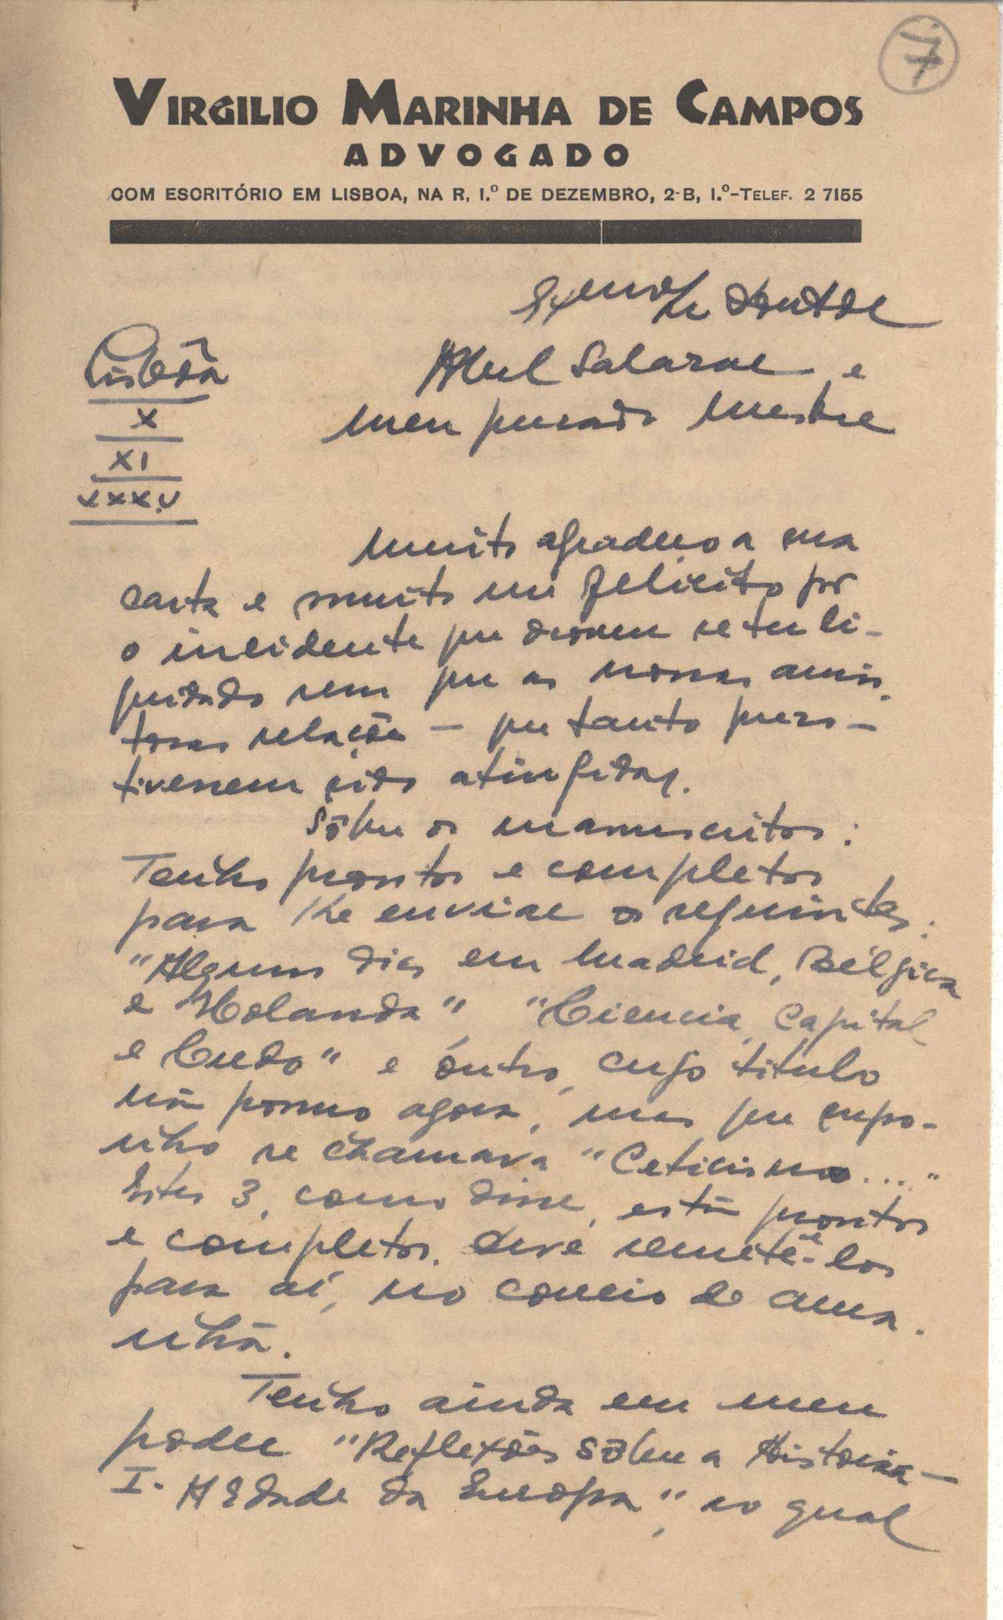 7
VIRGILIO MARINHA DE CAMPOS
ADVOGADO
COM ESCRITÓRIO EM LISBOA, NA R. 1.º DE DEZEMBRO, 2-B, 1.º-TELEF. 2 7155
Exmo Sr Doutor
Lisbôa
X
XI
XXXV
Abel Salazar e
meu presado Mestre
Muito agradeço a sua
carta e muito me felicito por
o incidente que houve se ter li-
quidado sem que as nossas amis-
tosas relações — que tanto preso —
tivessem sido atingidas.
Sôbre os manuscritos:
Tenho prontos e completos
para lhe enviar os seguintes:
"Alguns dias em Madrid, Bélgica
e Holanda" "Ciencia, Capital
e Credo" e outro, cujo titulo
não possuo agora, mas que supo-
nho se chamava "Ceticismo...."
Estes 3, como disse, estão prontos
e completos. devê remetê-los
para aí, no correio de ama-
nhã.
Tenho ainda em meu
poder "Reflexões sôbre a Historia —
I. A Edade da Europa", ao qual